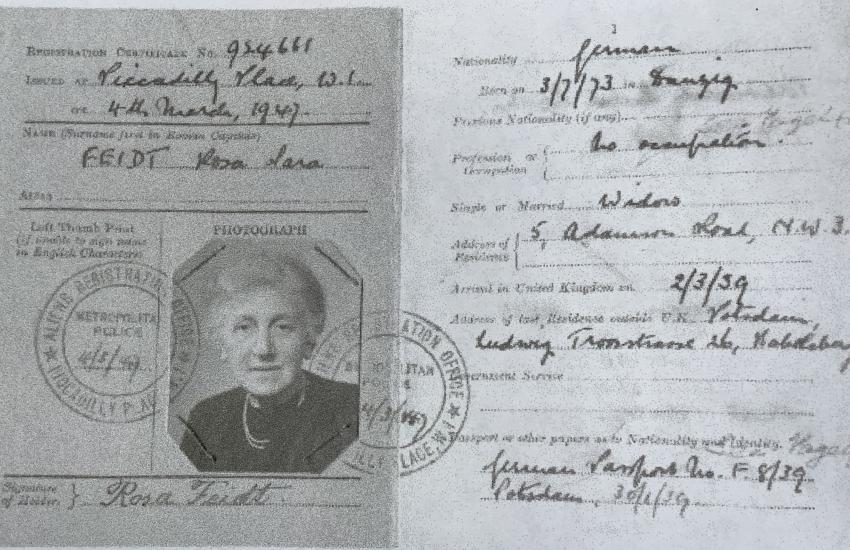 REGISTRATION CERTIFICATE No. 954661
ISSUED AT Piccadilly Place, W.1.
ON 4th March, 1947.
NAME (Surname first in Roman Capitals)
FEIDT Rosa Sara
ALIAS
Left Thumb Print
(if unable to sign name
in English Characters)
PHOTOGRAPH
ALIENS REGISTRATION OFFICE
METROPOLITAN
POLICE
4/3/47
PICCADILLY PLACE, W.1
Signature
of Holder
Rosa Feidt
1
Nationality German
Born on 3/7/73 in Danzig
Previous Nationality (if any)
Profession or
Occupation
No occupation.
Single or Married Widow
Address of
Residence
5, Adamson Road, N.W.3.
Arrival in United Kingdom on 2/3/39
Address of last Residence outside U.K. Potsdam,
Ludwig 26,
Government Service
Passport or other papers as to Nationality and Identity.
German Passport No. F. 8/39.
Potsdam, 30/1/39
ATION OFFICE
LITAN
4/3/47
LLY PLACE, W.1